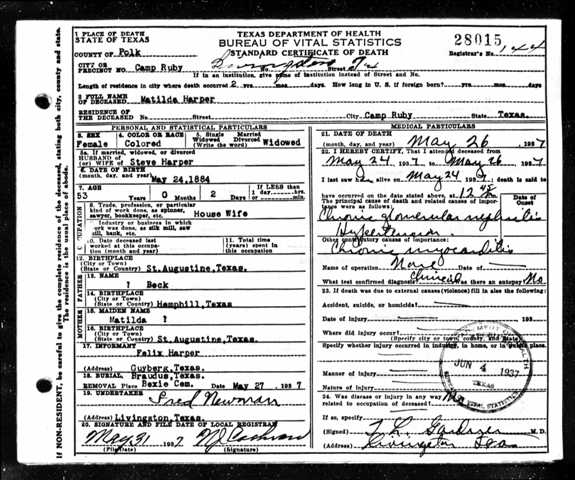 TEXAS DEPARTMENT OF HEALTH
BUREAU OF VITAL STATISTICS
STANDARD CERTIFICATE OF DEATH
28015
Registrar's No. 144
1 PLACE OF DEATH
STATE OF TEXAS
COUNTY OF Polk
CITY OR
PRECINCT NO. Camp Ruby
If in an institution, give name of institution instead of Street and No.
Length of residence in city where death occurred 2 yrs. mos. days. How long in U. S. if foreign born? yrs. mos. days.
2 FULL NAME
OF DECEASED Matilda Harper
RESIDENCE OF
THE DECEASED No. Street City Camp Ruby State Texas.
PERSONAL AND STATISTICAL PARTICULARS
3. SEX 4. COLOR OR RACE 5. Single Married Widowed Divorced (Write the word)
Female Colored Widowed
5a. If married, widowed or divorced
HUSBAND OF
(or) WIFE OF Steve Harper
6. DATE OF BIRTH
(month, day, and year) May 24,1884
7. AGE Years Months Days If LESS than 1 day
53 0 2 hrs. min.
OCCUPATION
8. Trade, profession, or particular
kind of work done, as spinner,
sawyer, bookkeeper, etc. House Wife
9. Industry or business in which
work was done, as silk mill, saw
mill, bank, etc.
10. Date deceased last
worked at this occupation
11. Total time (years) spent in this occupation
12. BIRTHPLACE
(City or Town)
(State or Country) St.Augustine,Texas.
FATHER
13. NAME
? Beck
14. BIRTHPLACE
(City or Town)
(State or Country) Hemphill,Texas
MOTHER
15. MAIDEN NAME
Matilda ?
16. BIRTHPLACE
(City or Town)
(State or Country) St.Augustine,Texas.
17. INFORMANT
Felix Harper
Guyberg,Texas.
18. BURIAL, Braudus,Texas.
REMOVAL Place Bexie Cem. Date May 27 1937
19. UNDERTAKER
Fred Newman
Livingston,Texas.
20. SIGNATURE AND FILE DATE OF LOCAL REGISTRAR
May 31 1937 Cochran
(File Date) (Signature)
MEDICAL PARTICULARS
21. DATE OF DEATH
(month, day, and year) May 26 1937
22. I HEREBY CERTIFY, That I attended deceased from
May 24, 1937, to May 26 1937
I last saw alive on May 24, death is said to
have occurred on the date stated above at 12 48
The principal cause of death and related causes of importance were as follows:
Date of Onset
Chronic glomerular nephritis
Hypertension
Other contributory causes of importance:
Chronic myocarditis
Name of operation None
What test confirmed diagnosis? Clinical Was there an autopsy? No
23. If death was due to external causes (violence) fill in also the following:
Accident, suicide, or homicide?
Date of injury 193
Where did injury occur?
(Specify city or town, county, and State)
Specify whether injury occurred in industry, in home, or in public place.
Manner of injury
Nature of injury
24. Was disease or injury in any way
related to occupation of deceased? No
If so, specify
(Signed) Gardner M.D.
(Address) Livingston Texas
JUN 4 1937
TEXAS
VITAL STATISTICS